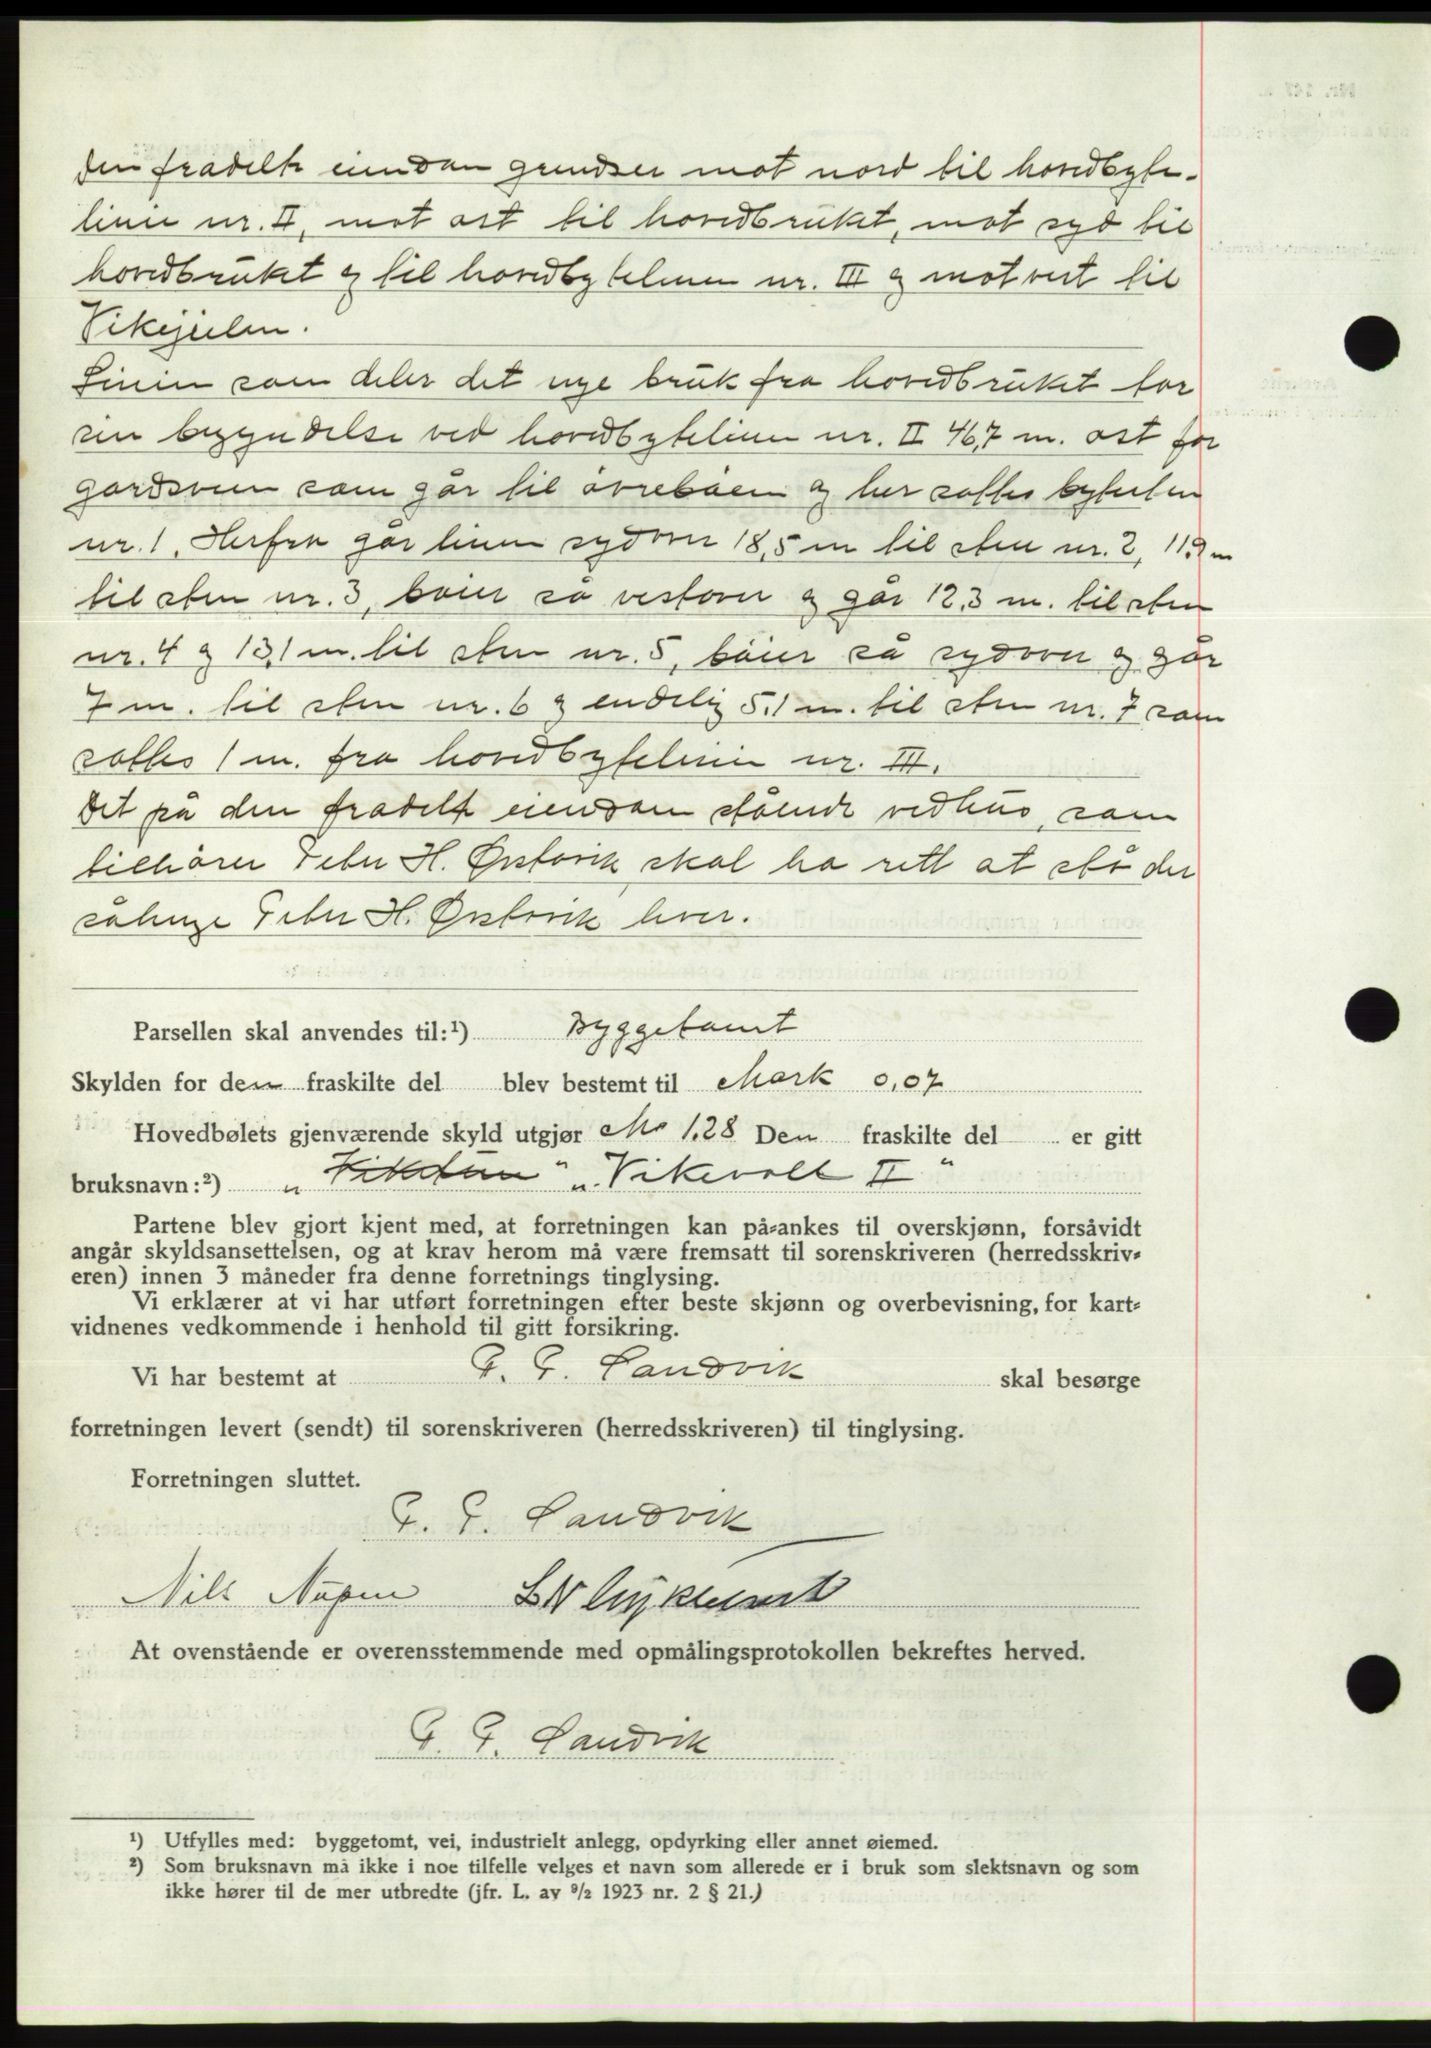 den fradelte eiendom grendser mot nord til hovedbyte-
linie nr. II, mot øst til hovedbruket, mot syd til
hovedbruket og til hovedbytelinien nr. III og mot vest til
Linien som deler det nye bruk fra hovedbruket tar
sin begyndelse ved hovedbytelinien nr. II 46,7 m. øst for
gardsveien som går til øvrebøen og her sattes bytesten
nr. 1. Herfra går linien sydover 18,5 m til sten nr. 2, 11,9 m
til sten nr. 3, bøier så vestover og går 12,3 m. til sten
nr. 4 og 13,1 m. til sten nr. 5, bøier så sydover og går
7 m. til sten nr. 6 og endelig 5,1 m. til sten nr. 7 som
sattes 1 m. fra hovedbytelinien nr. III.
Det på den fradelte eiendom stående vedhus, som
tilhører Peter H. Ørstavik skal ha rett at stå der
sålenge Peter H. Ørstavik lever.
Parsellen skal anvendes til:¹) Byggetomt
Skylden for den fraskilte del blev bestemt til Mark 0,07
Hovedbølets gjenværende skyld utgjør M. 1,28 Den fraskilte del er gitt
bruksnavn:²) „Vikevoll II"
Partene blev gjort kjent med, at forretningen kan på-ankes til overskjønn, forsåvidt
angår skyldsansettelsen, og at krav herom må være fremsatt til sorenskriveren (herredsskriv-
eren) innen 3 måneder fra denne forretnings tinglysing.
Vi erklærer at vi har utført forretningen efter beste skjønn og overbevisning, for kart-
vidnenes vedkommende i henhold til gitt forsikring.
Vi har bestemt at P. P. Sandvik skal besørge
forretningen levert (sendt) til sorenskriveren (herredsskriveren) til tinglysing.
Forretningen sluttet.
P. P. Sandvik
Nils
At ovenstående er overensstemmende med opmålingsprotokollen bekreftes herved.
P. P. Sandvik
¹) Utfylles med: byggetomt, vei, industrielt anlegg, opdyrking eller annet øiemed.
²) Som bruksnavn må ikke i noe tilfelle velges et navn som allerede er i bruk som slektsnavn og som
ikke hører til de mer utbredte (jfr. L. av 9/2 1923 nr. 2 § 21.)